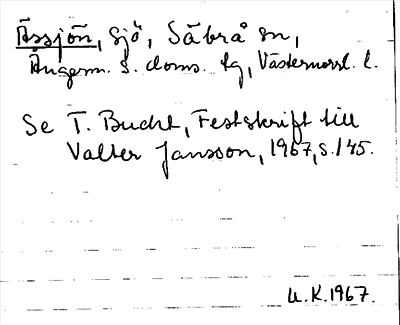 Ässjön, sjö, Säbrå sn,
Ångerm. s. doms. lg, Västernorrl. l.
Se T. Bucht, Festskrift till
Valter Jansson, 1967, s. 145.
U.K. 1967.